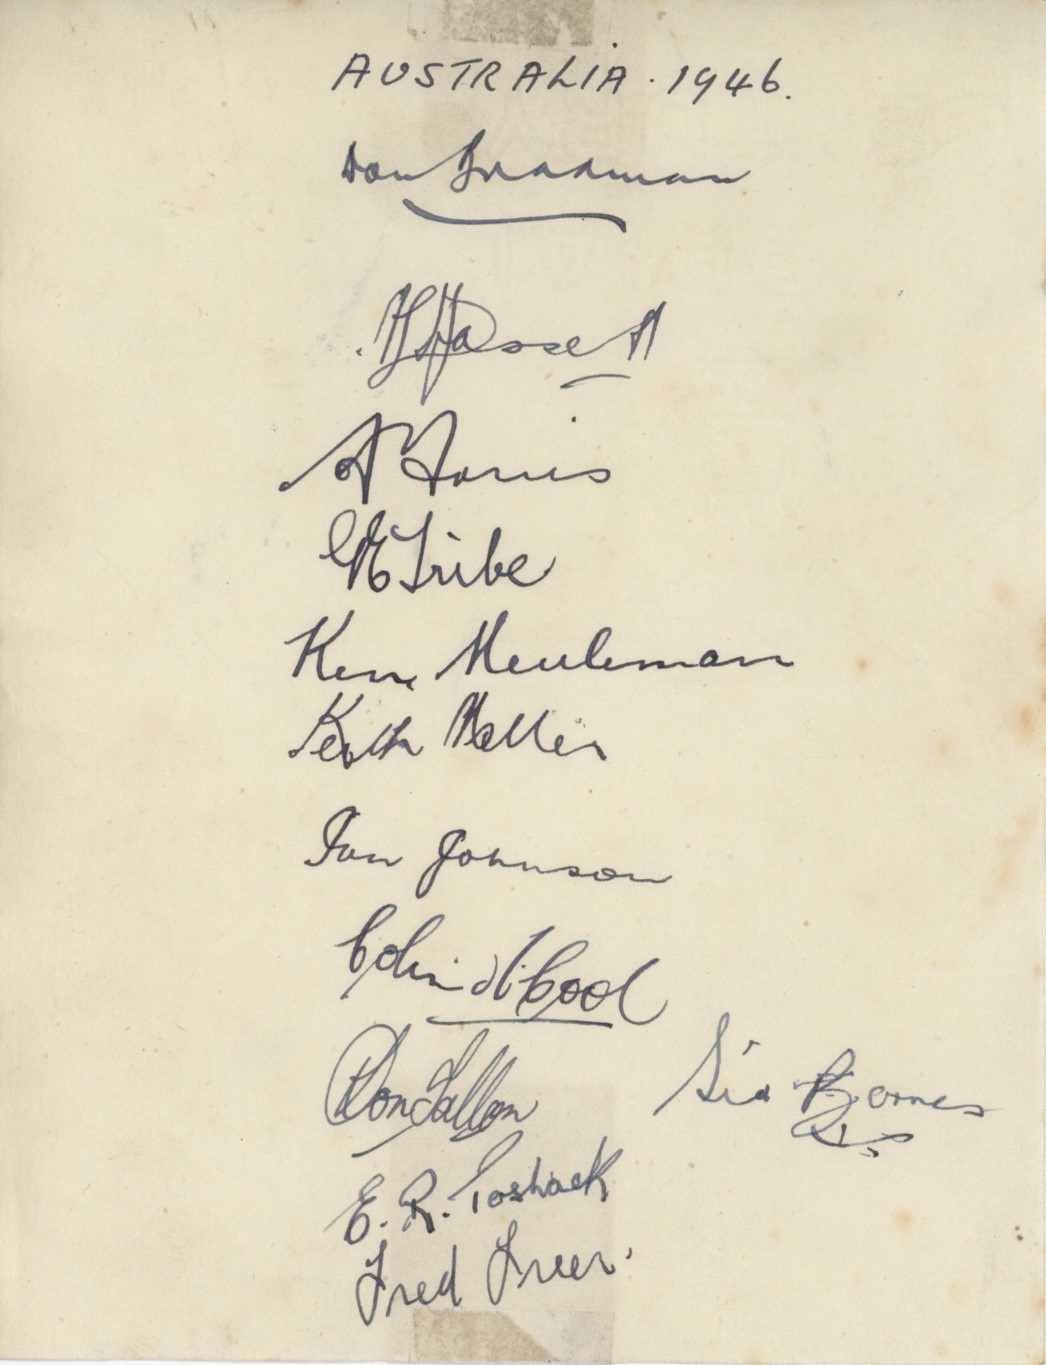 AUSTRALIA. 1946.
Don Bradman
A L Hassett
A Morris
G E Tribe
Ken Meuleman
Keith Miller
Ian Johnson
Colin McCool
Don Tallon
Sid Barnes
E. R. Toshack
Fred Freer